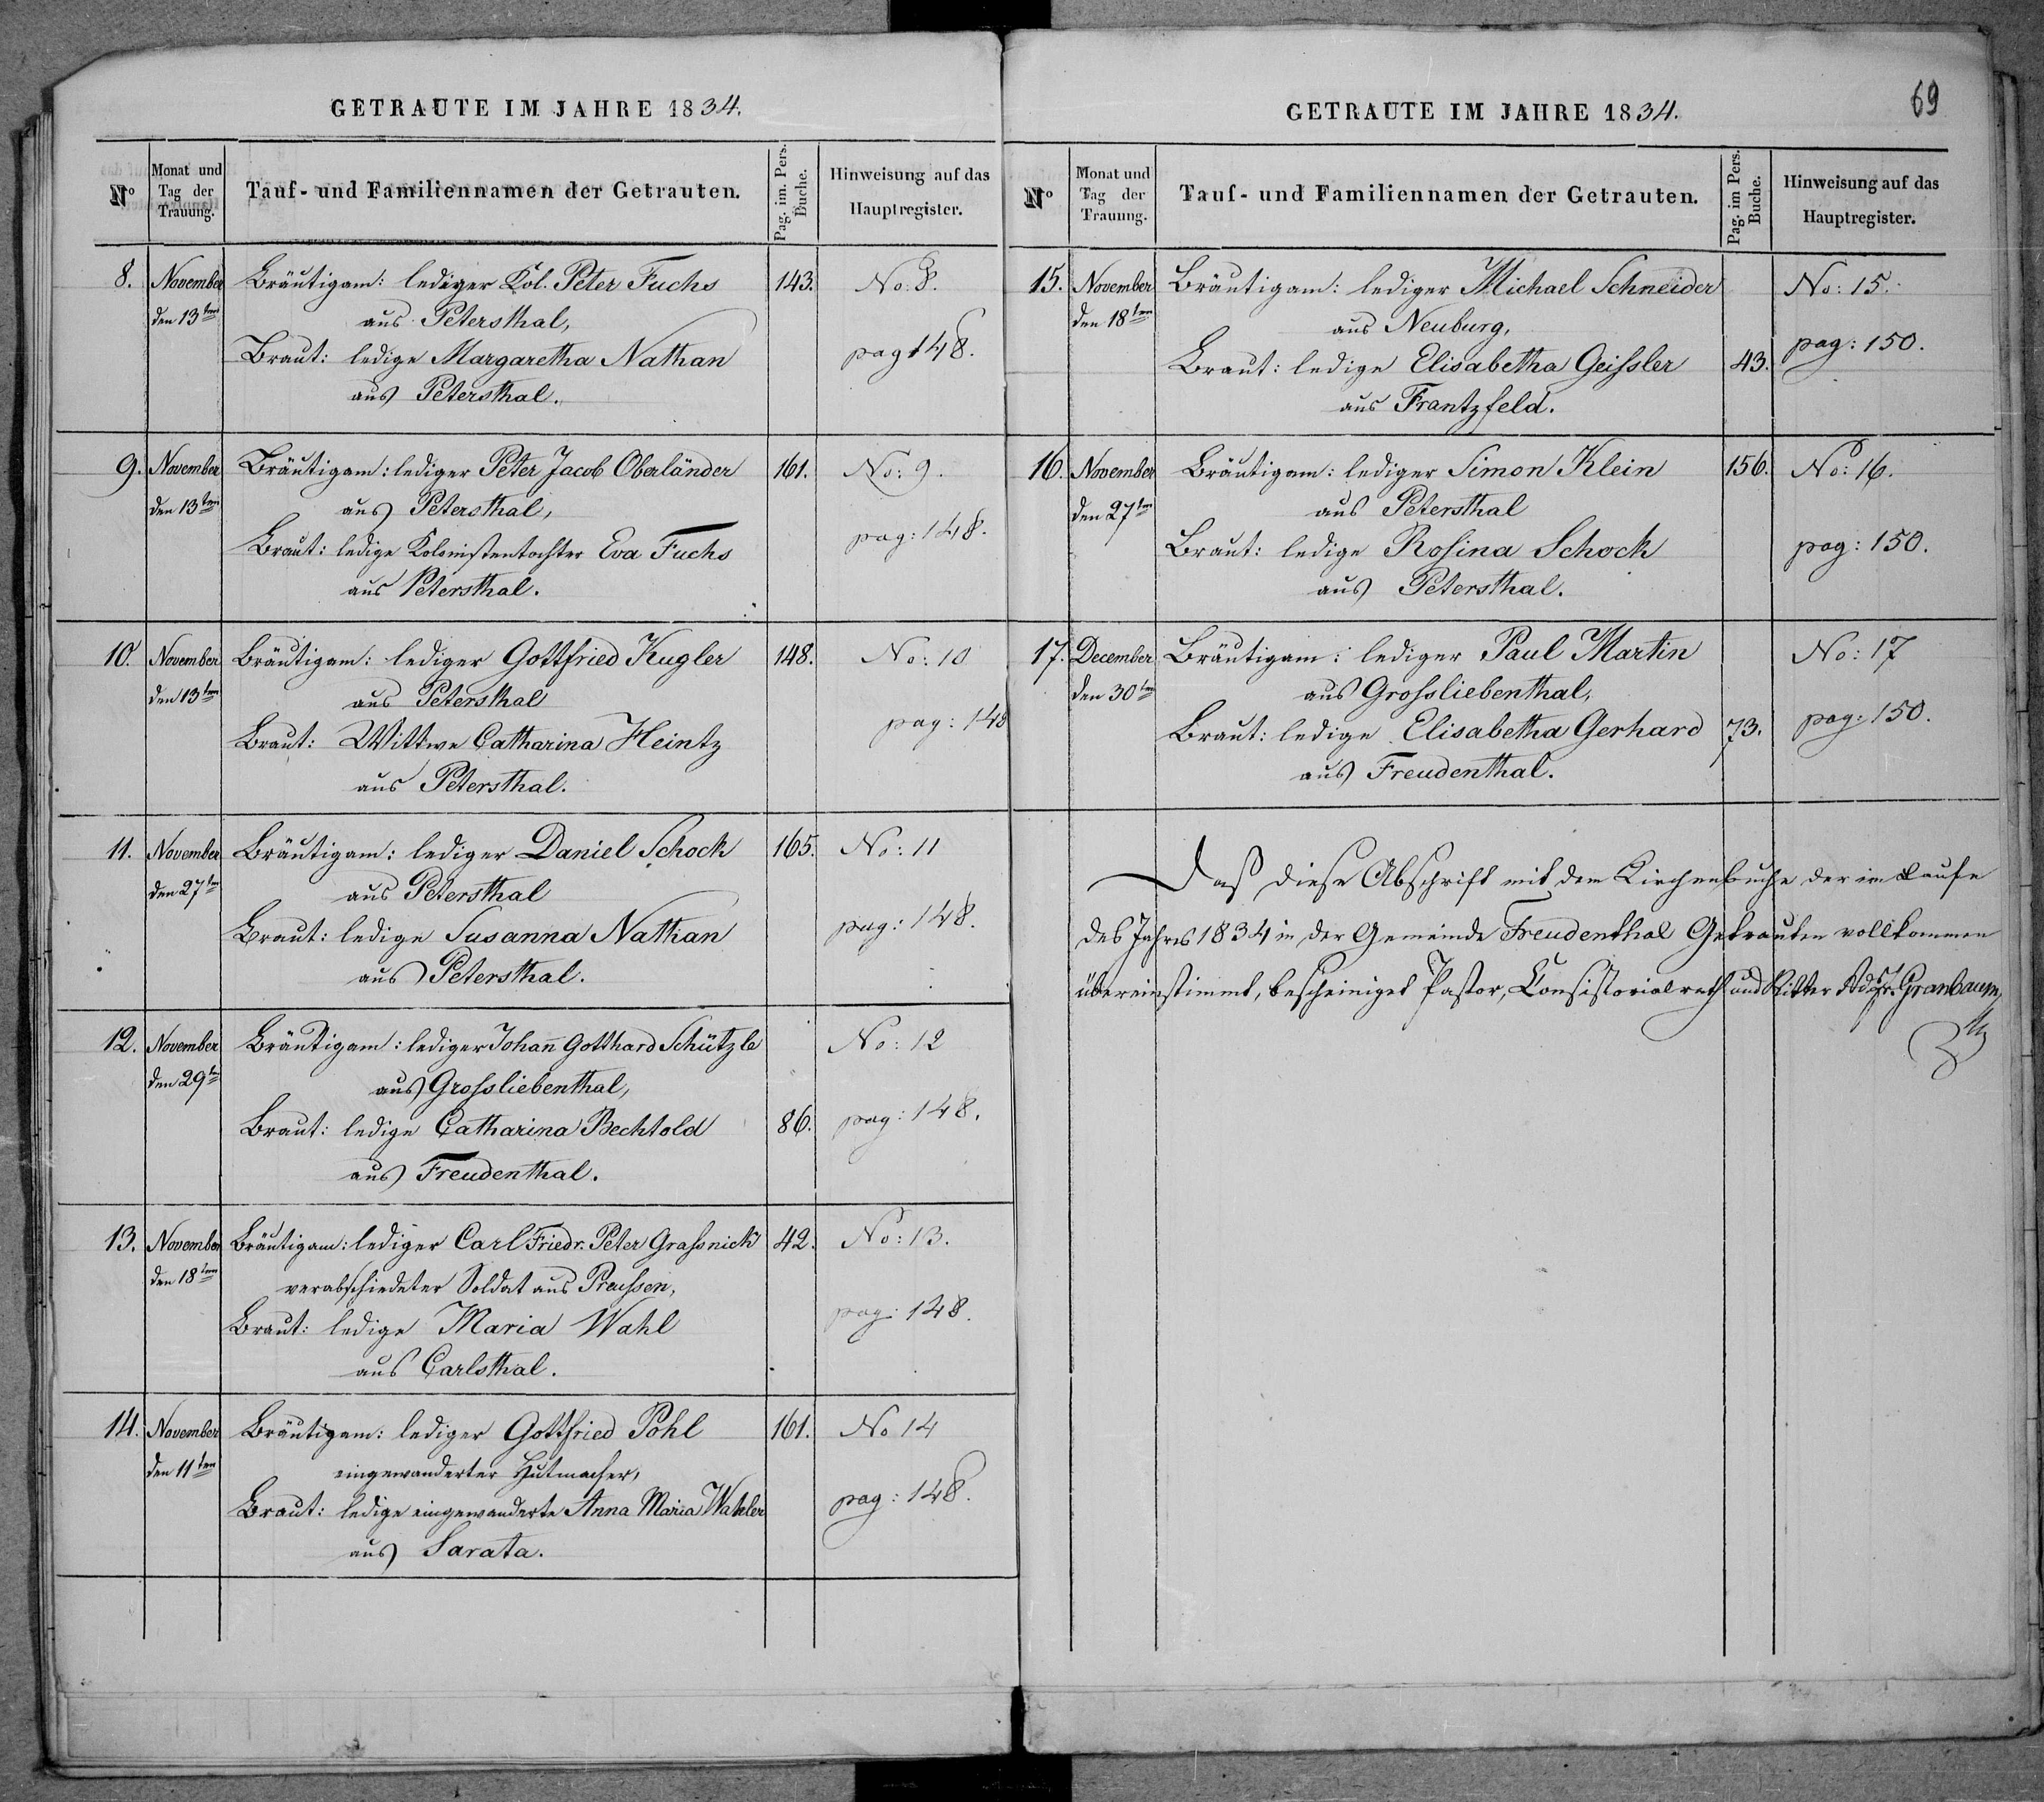 GETRAUTE IM JAHRE 1834.
No
Monat und
Tag der
Trauung.
Tauf- und Familiennamen der Getrauten.
Pag. im. Pers.
Buche.
Hinweisung auf das
Hauptregister.
8. November Bräutigam: lediger Kol. Peter Fuchs 143. No: 8.
den 13ten aus Petersthal,
Braut: ledige Margaretha Nathan pag 148.
aus Petersthal.
9. November Bräutigam: lediger Peter Jacob Oberländer 161. No: 9.
den 13ten aus Petersthal,
Braut: ledige Kolonistentochter Eva Fuchs pag: 148.
aus Petersthal.
10. November Bräutigam: lediger Gottfried Kugler 148. No: 10
den 13ten aus Petersthal
Braut: Wittwe Catharina Heintz pag: 148
aus Petersthal.
11. November Bräutigam: lediger Daniel Schock 165. No: 11
den 27ten aus Petersthal
Braut: ledige Susanna Nathan pag: 148.
aus Petersthal.
12. November Bräutigam: lediger Johan̄ Gotthard Schützle No: 12
den 29ten aus Grossliebenthal,
Braut: ledige Catharina Bechtold 86. pag: 148.
aus Freudenthal.
13. November Bräutigam: lediger Carl Friedr. Peter Grassnick 42. No: 13.
den 18ten verabschiedeter Soldat aus Preussen,
Braut: ledige Maria Wahl pag: 148.
aus Carlsthal.
14. November Bräutigam: lediger Gottfried Pohl 161. No 14
den 11ten eingewanderter Hutmacher,
Braut: ledige eingewanderte Anna Maria Wahler pag: 148.
aus Sarata.
69
GETRAUTE IM JAHRE 1834.
No
Monat und
Tag der
Trauung.
Tauf- und Familiennamen der Getrauten.
Pag. im Pers.
Buche.
Hinweisung auf das
Hauptregister.
15. November Bräutigam: lediger Michael Schneider No: 15.
den 18ten aus Neuburg,
Braut: ledige Elisabetha Geissler 43. pag: 150.
aus Frantzfeld.
16. November Bräutigam: lediger Simon Klein 156. No: 16.
den 27ten aus Petersthal
Braut: ledige Rosina Schock pag: 150.
aus Petersthal.
17. December Bräutigam: lediger Paul Martin No: 17
den 30ten aus Grossliebenthal,
Braut: ledige Elisabetha Gerhard 73. pag: 150.
aus Freudenthal.
Daß diese Abschrift mit dem Kirchenbuche der im Laufe
des Jahres 1834 in der Gemeinde Freudenthal Getrauten vollkommen
übereinstimmt, bescheiniget Pastor, Consistorialrath und Ritter Granbaum